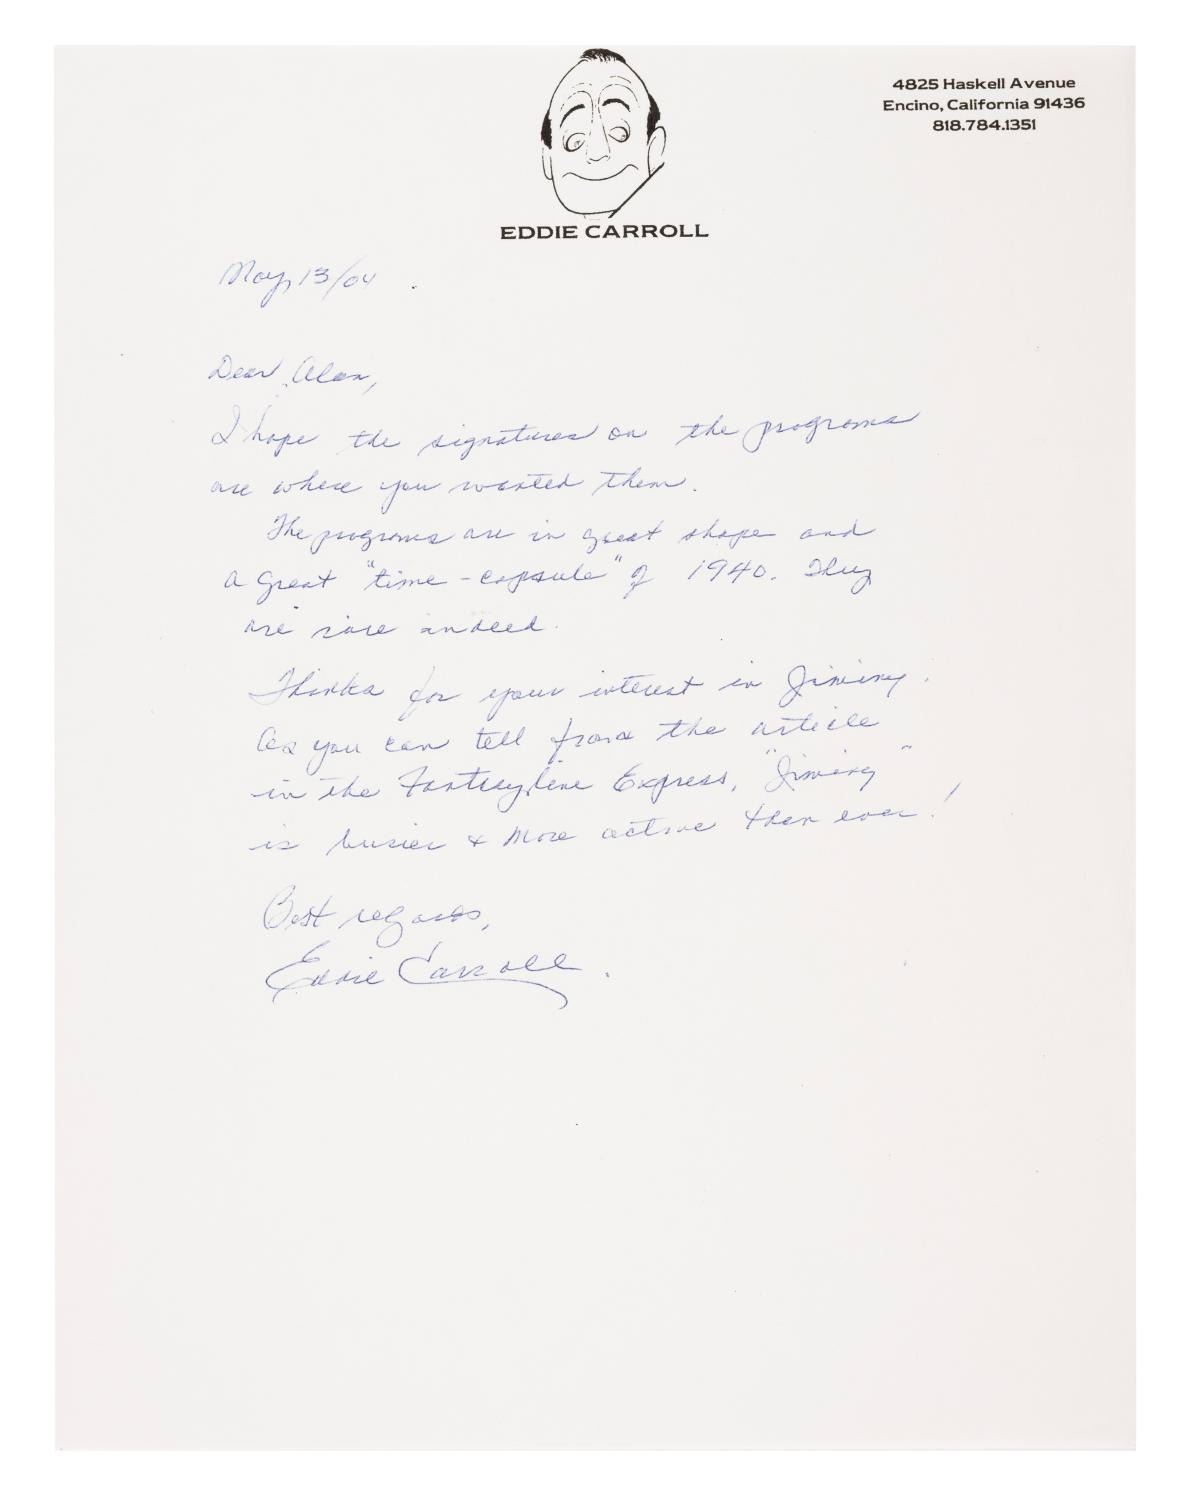 4825 Haskell Avenue
Encino, California 91436
818.784.1351
EDDIE CARROLL
May, 13/04
Dear Alan,
I hope the signatures on the programs
are where you wanted them.
The programs are in great shape and
a great "time-capsule" of 1940. They
are rare indeed.
Thanks for your interest in Jiminy.
As you can tell from the article
in the Fantasyline Express, "Jiminy"
is busier & more active than ever!
Best regards,
Eddie Carroll.